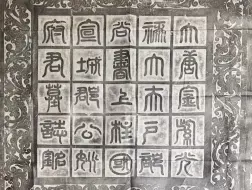 大唐金紫光
祿大夫戶部
尚書上柱國
宣城郡公姚
府君墓誌銘